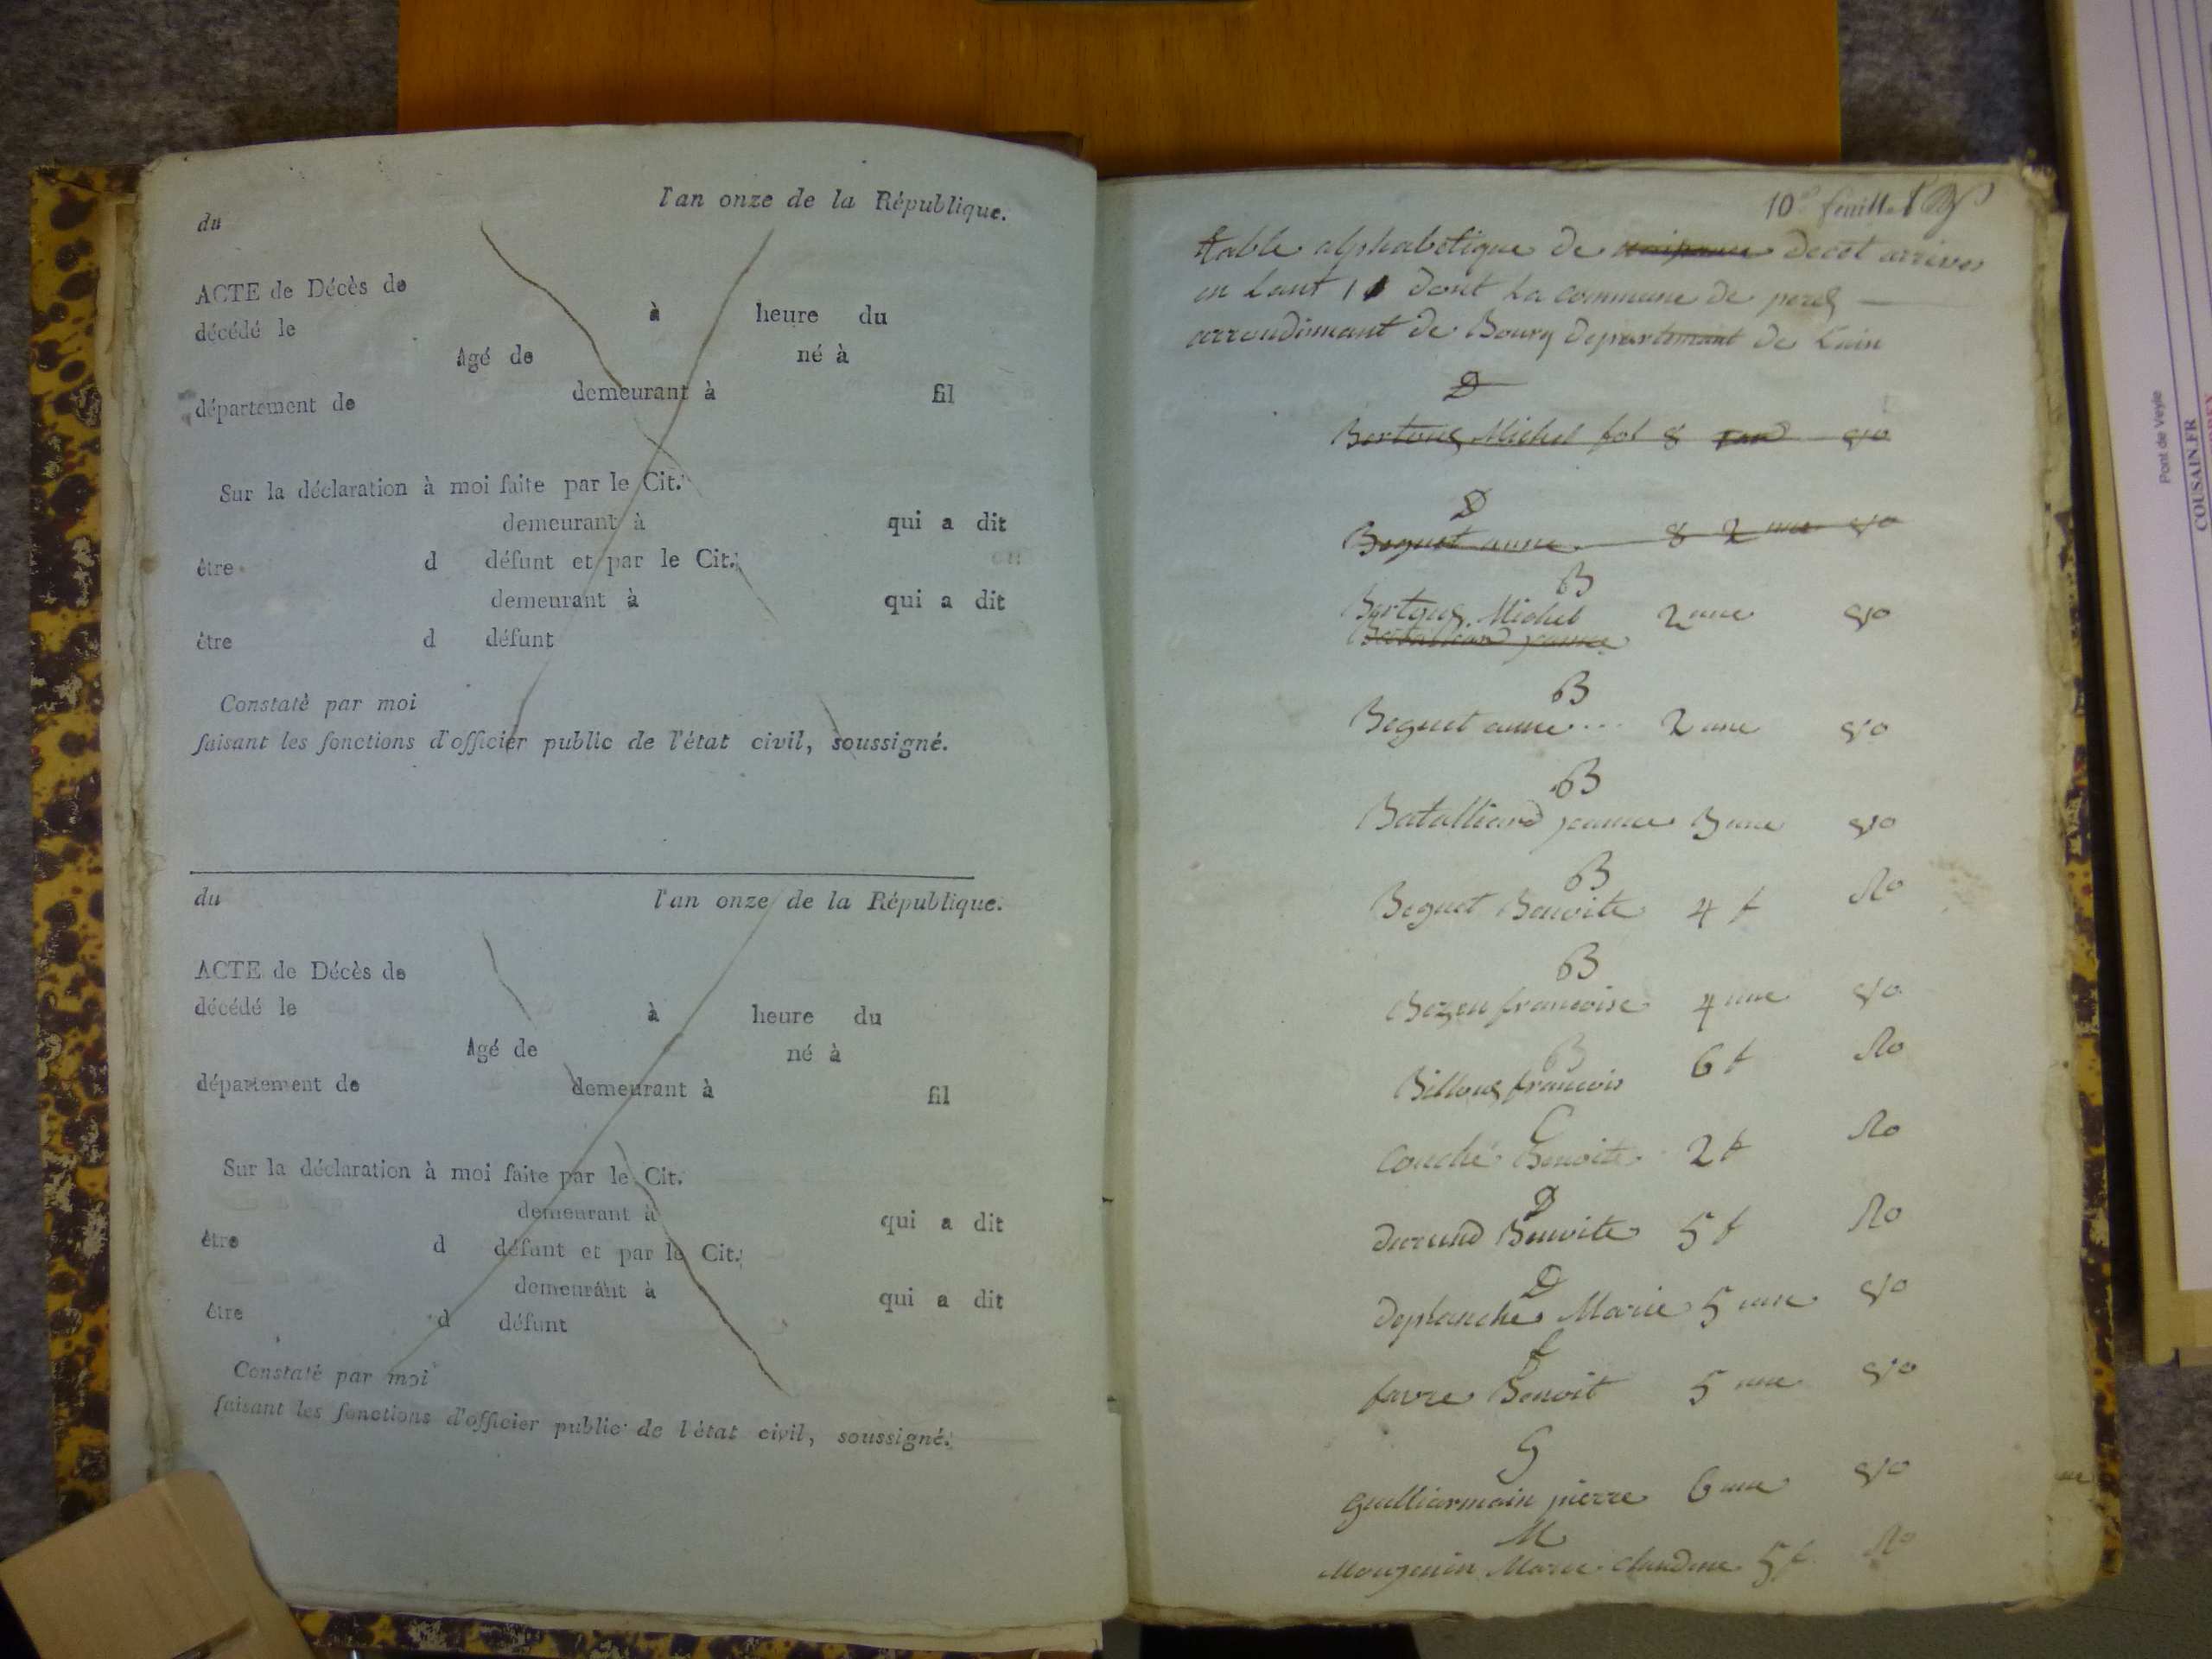 l'an onze de la République.
du
ACTE de Décès de
décédé le à heure du
Agé de né à
département de demeurant à fil
Sur la déclaration à moi faite par le Cit.
demeurant à qui a dit
être d défunt et par le Cit.
demeurant à qui a dit
être d défunt
Constaté par moi
faisant les fonctions d'officier public de l'état civil, soussigné.
du l'an onze de la République.
ACTE de Décès de
décédé le à heure du
Agé de né à
département de demeurant à fil
Sur la déclaration à moi faite par le Cit.
demeurant à qui a dit
être d défunt et par le Cit.
demeurant à qui a dit
être d défunt
Constaté par moi
faisant les fonctions d'officier public de l'état civil, soussigné.
10e feuillet
table alphabetique de naissance decet arrives
en Lant 11 dont La commune de perex
arrondimant de Bourg departemant de Lain
D
Bertoux Michel fol 8 Vo
D
Boguet anne 8 2 me Vo
B
Bertoux Michel 2 me Vo
Batalliard jeanne
B
Boguet anne 2 me Vo
B
Batalliard jeanne 3 me Vo
B
Boguet Benoite 4 f Ro
B
francoise 4 me Vo
B
Billoux francois 6 f Ro
C
Couché Benoite 2 f Ro
D
durand Benoite 5 f Ro
D
deplanche Marie 5 me Vo
f
favre Benoit 5 me Vo
G
guilliarmain pierre 6 me Vo
M
Marie claudine 5 f Ro
Pont de Veyle
COUSAIN.FR